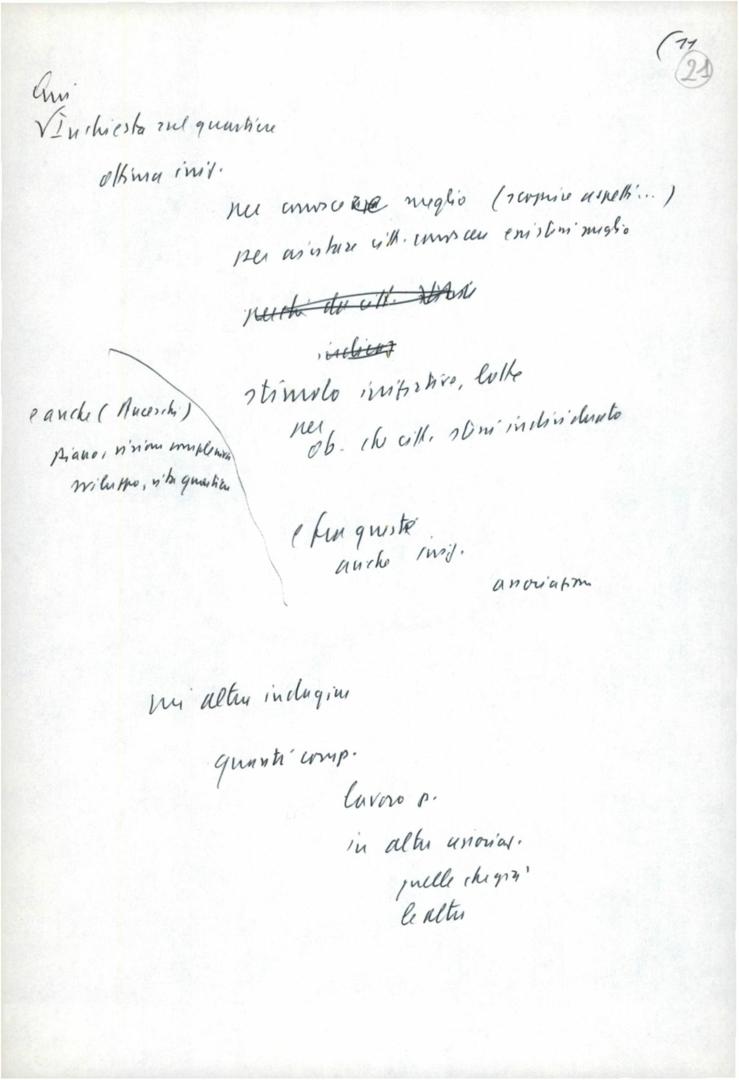 (11
21
Qui
√ Inchiesta sul quartiere
ottima iniz.
per conoscere meglio (scoprire aspetti...)
per aiutare citt. conoscere meglio
perché da citt.
indicaz
stimolo iniziative, lotte
per
ob. che citt. individuato
e anche (Anceschi)
piano, visione complessiva
sviluppo, vita quartiere
e fra queste
anche iniz.
associazioni
mi altra indagine
quanti comp.
lavoro p.
in altre associaz.
quelle che già
le altre